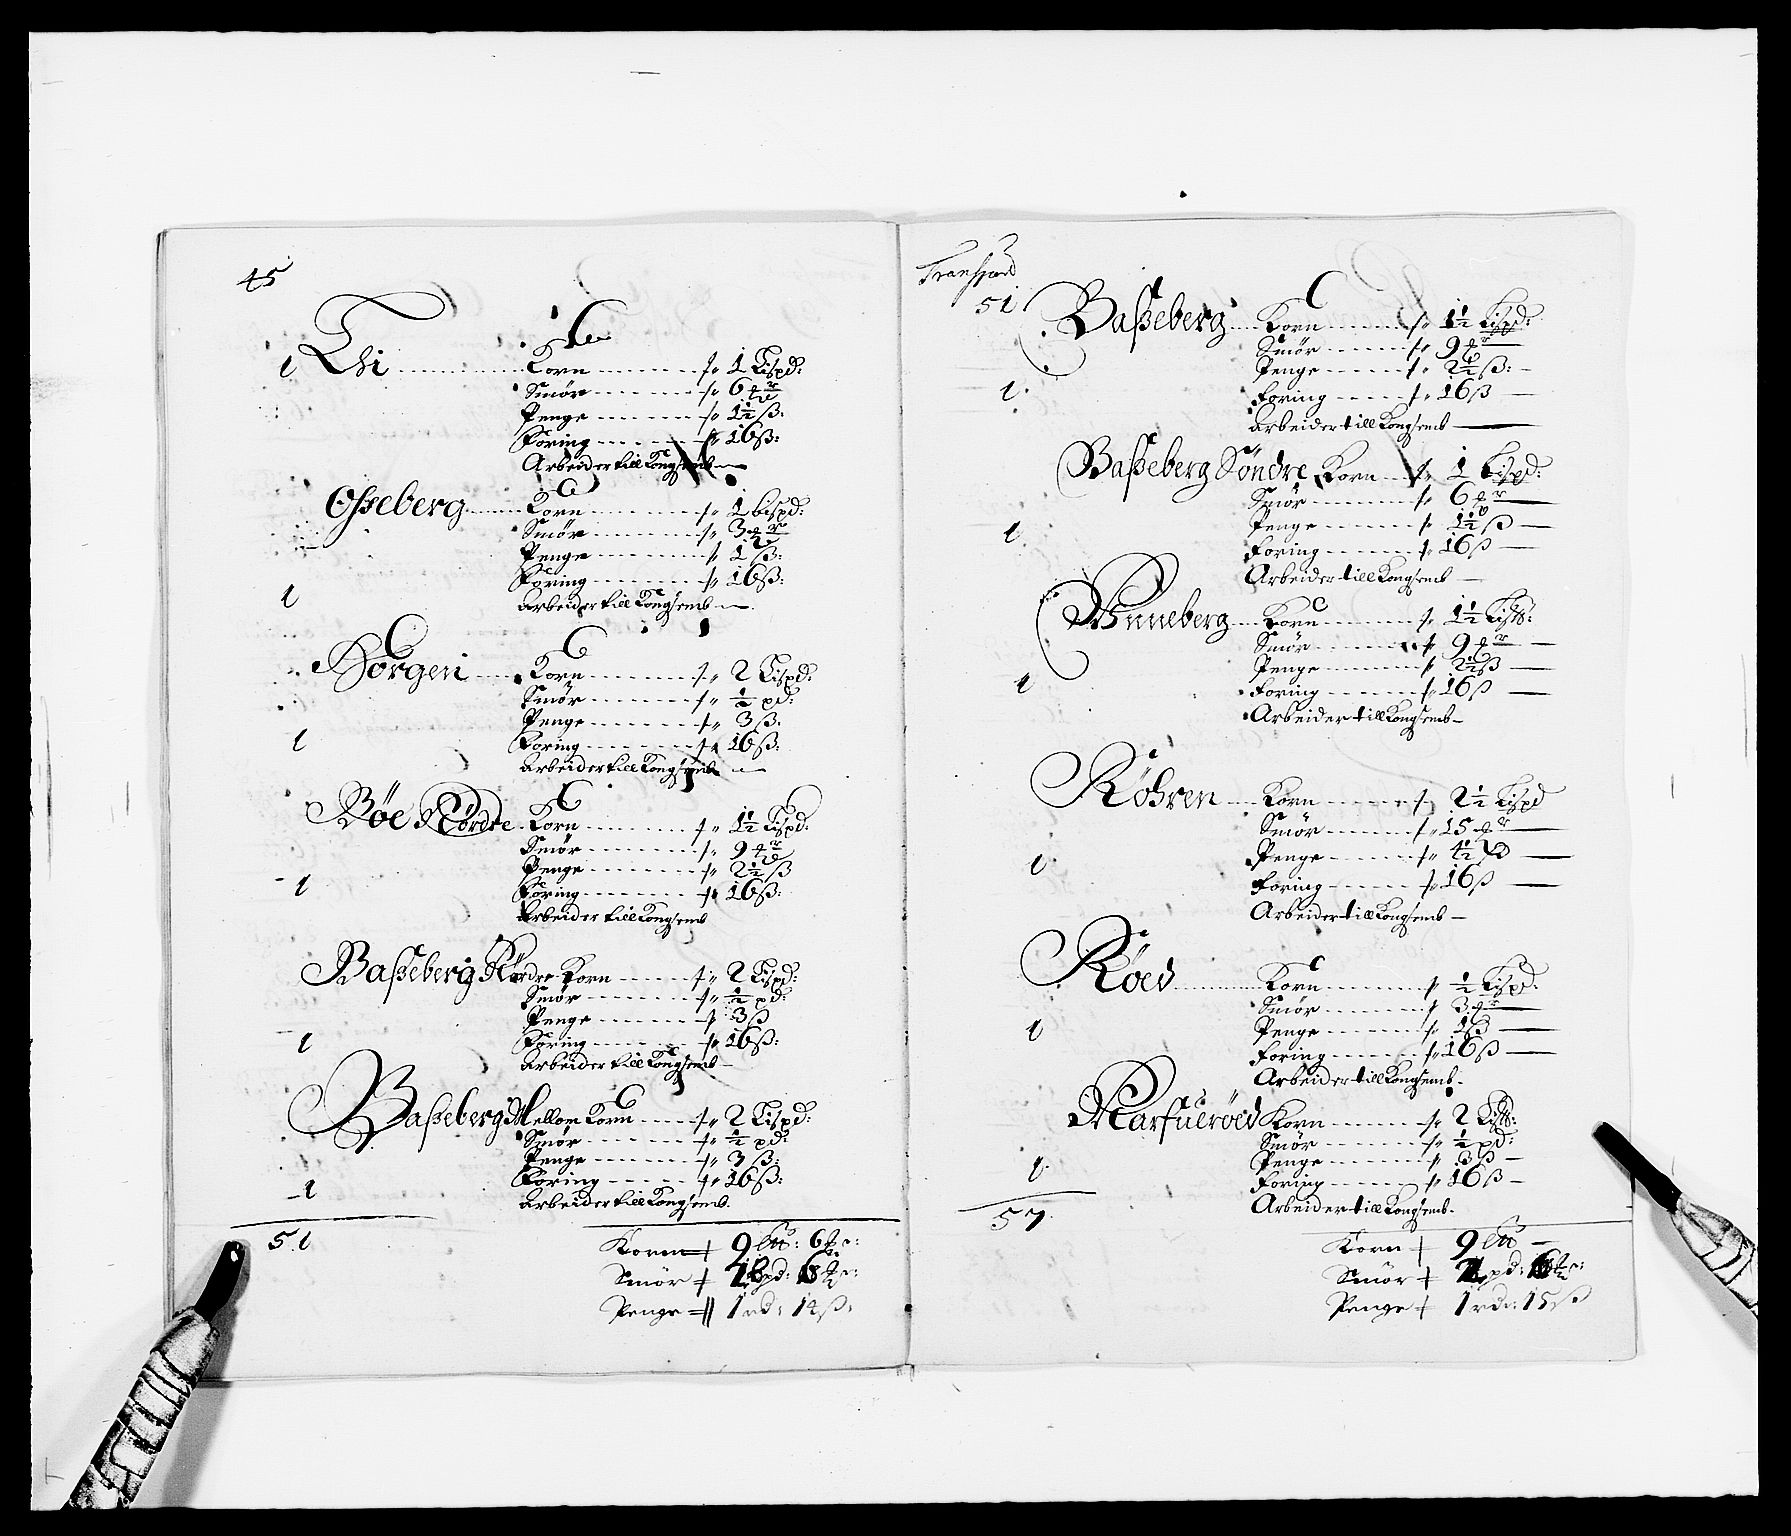 45
1 Thi Korn 1 Lispd:
Smör 6 mr
Penge 1½ ß:
Foring 16 ß:
Arbeider till Kongsemb
Osseberg Korn 1 Lispd:
Smör 3 mr
Penge 1 ß:
Foring 16 ß:
1 Arbeider till Kongsemb
Borgen Korn 2 Lispd:
Smör ½ pd:
Penge 3 ß:
1 Foring 16 ß:
Arbeider till Kongsemb
Böe Nordre Korn 1½ Lispd:
Smör 9 mr
Penge 2½ ß
1 Foring 16 ß:
Arbeider till Kongsemb
Baßeberg Nordre Korn 2 Lispd:
Smör ½ pd:
Penge 3 ß
1 Foring 16 ß:
Arbeider till Kongsemb
Baßeberg Mellom Korn 2 Lispd:
Smör ½ pd:
Penge 3 ß:
1 Foring 16 ß:
Arbeider till Kongsemb.
51 Korn 9
Smör 6
Penge 1 rd: 14 ß:
Transport
51 Baßeberg Korn 1½ Lispd:
Smör 9 mr
Penge 2½ ß:
1 Foring 16 ß
Arbeider till Kongsemb
Baßeberg Söndre Korn 1 Lispd:
Smör 6 mr
1 Penge 1½ ß
Foring 16 ß
Arbeider till Kongsemb
Unneberg Korn 1½
Smör 9 mr
Penge 2½ ß
1 Foring 16 ß
Arbeider till Kongsemb
Röhren Korn 2½ Lispd
Smör 15 mr
1 Penge 4½ ß
Foring 16 ß
Arbeider till Kongsemb
Röed Korn ½ Lispd:
Smör 3 mr
1 Penge 1 ß
Foring 16 ß
Arbeider till Kongsemb.
Marfueröed Korn 2
Smör ½ pd:
1 Penge 3 ß
Foring 16 ß
57 Arbeider till Kongsemb.
Korn 9
Smör pd: 6
Penge 1 rd: 15 ß